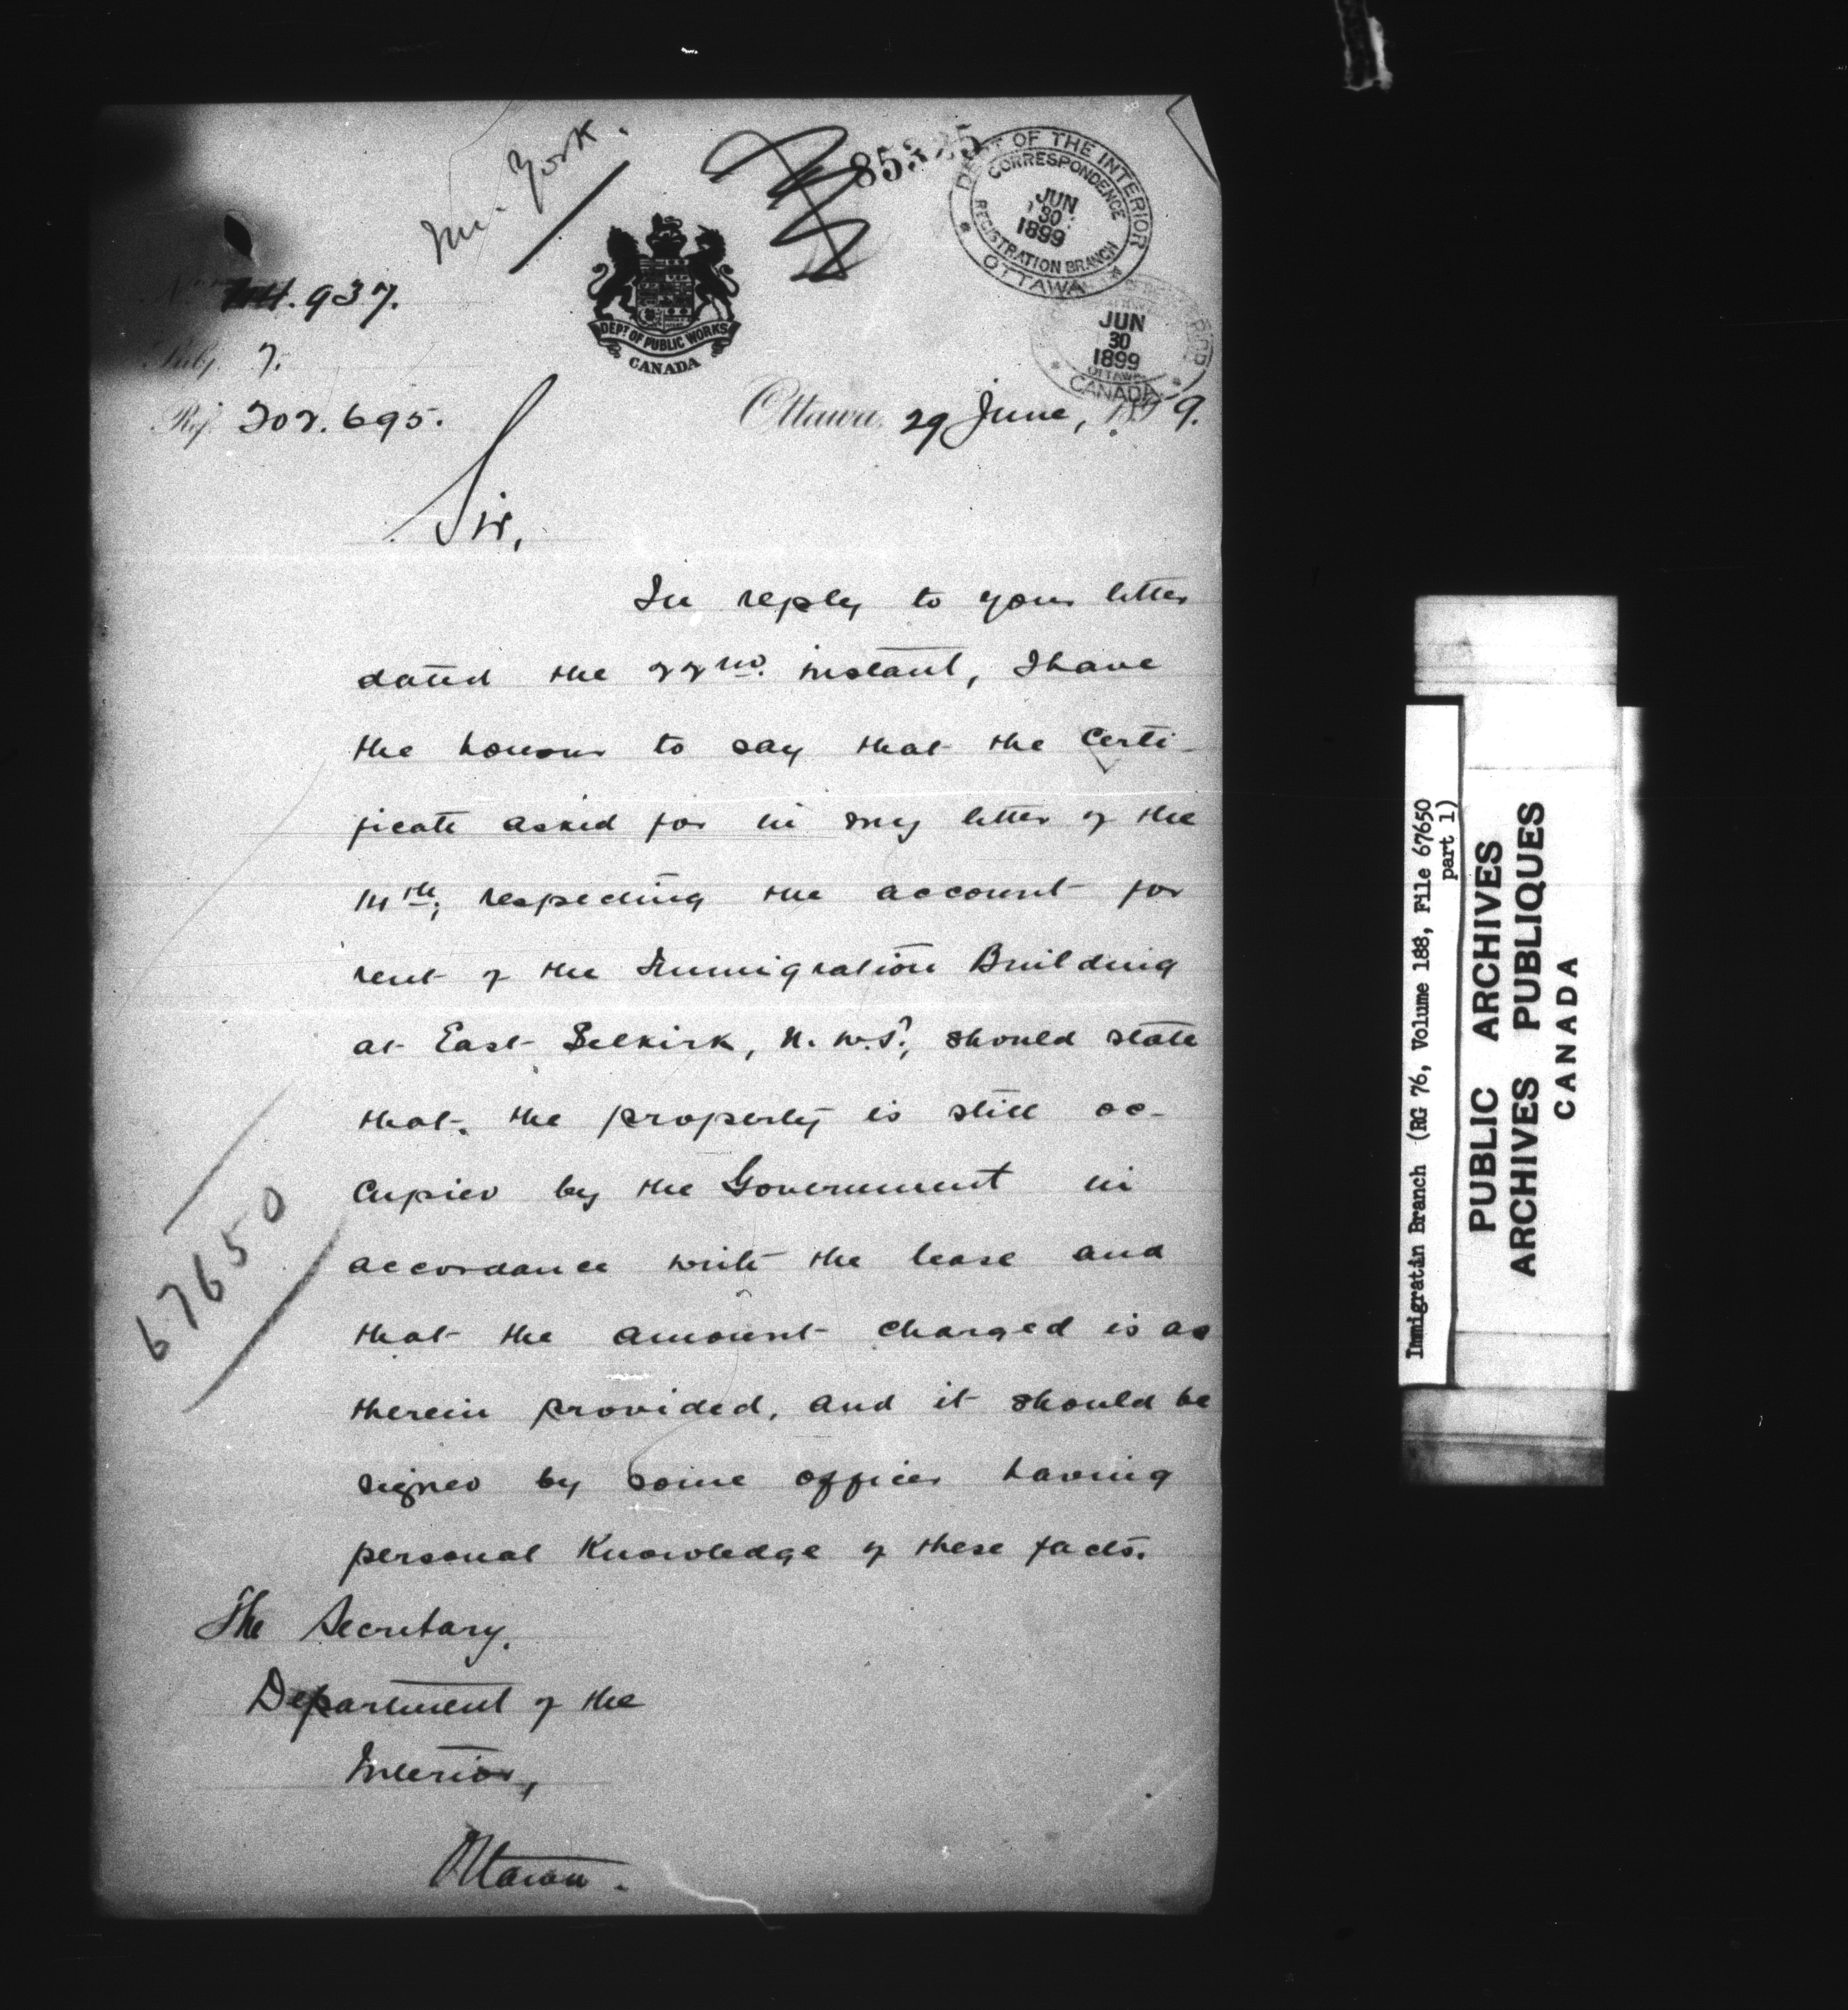 Mr. York.
85325
DEPT OF THE INTERIOR
CORRESPONDENCE
JUN
30
1899
REGISTRATION BRANCH
OTTAWA
No 937.
DEPT OF PUBLIC WORKS
CANADA
JUN
30
1899
OTTAWA
CANADA
Subj. 7.
Ref. 202.695.
Ottawa, 29 June, 1899.
Sir,
In reply to your letter
dated the 22nd. instant, I have
the honour to say that the Certi-
ficate asked for in my letter of the
14th, respecting the account for
rent of the Immigration Building
at East Selkirk, N.W.T., should state
that the property is still oc-
cupied by the Government in
accordance with the lease and
that the amount charged is as
therein provided, and it should be
signed by some officer having
personal knowledge of these facts.
67650
The Secretary,
Department of the
Interior,
Ottawa.
Immigratin Branch (RG 76, Volume 188, File 67650
part 1)
PUBLIC ARCHIVES
ARCHIVES PUBLIQUES
CANADA